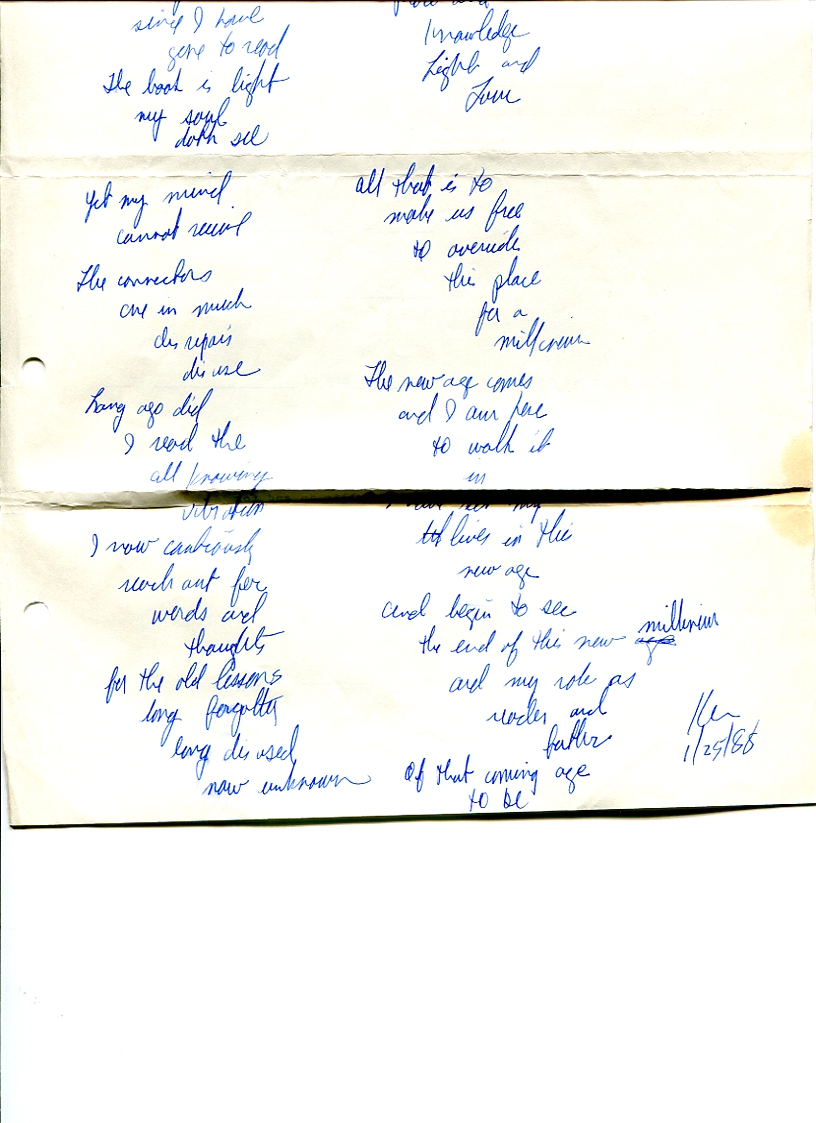 since I have
gone to read
The book is light
my soul
doth see
Yet my mind
cannot receive
The connectors
are in much
disrepair
disuse
Long ago did
I read the
all knowing
vibration
I now cautiously
reach out for
words and
thoughts
for the old lessons
long forgotten
long disused
now unknown
knowledge
Light and
Love
all that is to
make us free
to override
this place
for a
millenium
The new age comes
and I am here
to walk it
in
my
lives in this
new age
and begin to see
the end of this new millenium
and my role as
reader and
father
Of that coming age
to be
Ken
1/25/88